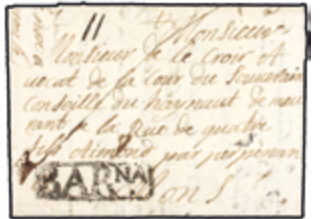 11
Monsieur
Monsieur de le Croix A
vocat de la Cour du Souverain
Conseille du haynaut de meu
rant a la Rue de quatre
fils Aimond par per
BARNA
Mons